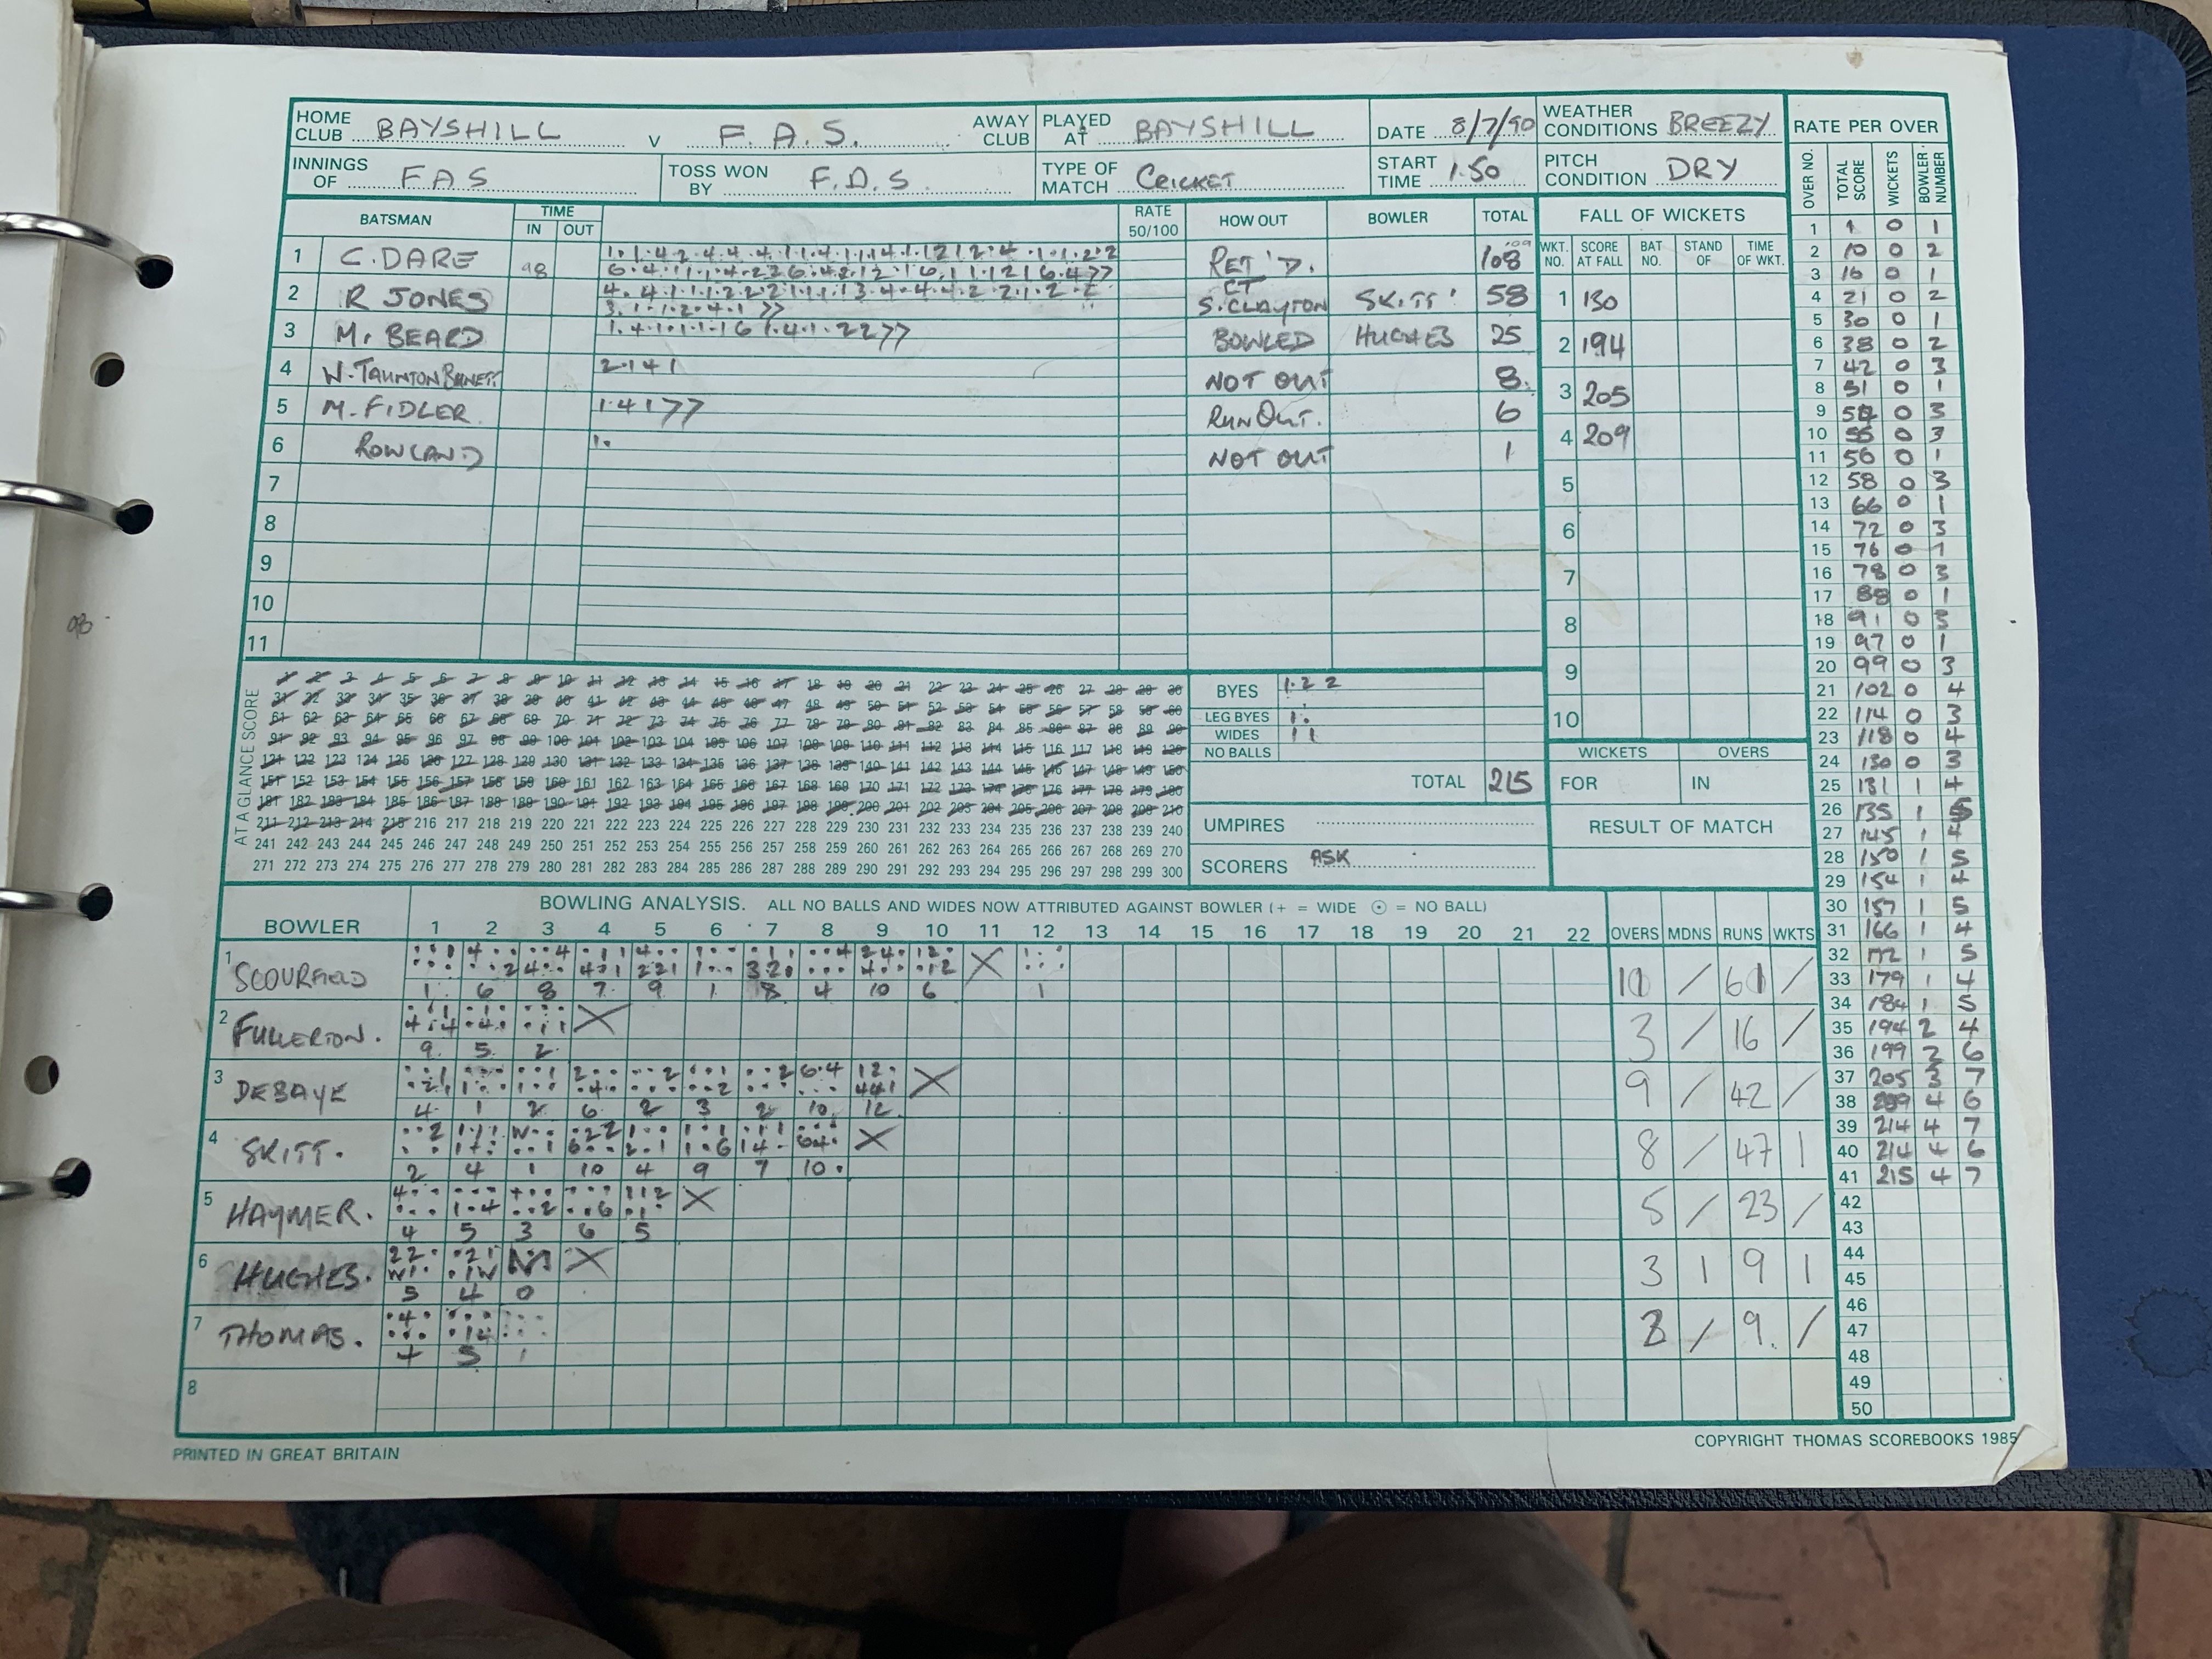 HOME CLUB BAYSHILL v F.A.S. AWAY CLUB PLAYED AT BAYSHILL DATE 8/7/90 WEATHER CONDITIONS BREEZY RATE PER OVER
INNINGS OF FAS TOSS WON BY F.D.S. TYPE OF MATCH CRICKET START TIME 1.50 PITCH CONDITION DRY
BATSMAN TIME IN OUT RATE 50/100 HOW OUT BOWLER TOTAL FALL OF WICKETS
WKT. NO. SCORE AT FALL BAT NO. STAND OF TIME OF WKT.
OVER NO. TOTAL SCORE WICKETS BOWLER NUMBER
1 C. DARE 98 RET'D. 108
2 R JONES CT S. CLAYTON SKITT 58
3 M. BEARD BOWLED HUGHES 25
4 W. TAUNTON NOT OUT 8
5 M. FIDLER 1·41>> RUN OUT. 6
6 ROWLAND 1· NOT OUT 1
7
8
9
10
11
1 130
2 194
3 205
4 209
5
6
7
8
9
10
WICKETS OVERS
FOR IN
RESULT OF MATCH
AT A GLANCE SCORE
1 2 3 4 5 6 7 8 9 10 11 12 13 14 15 16 17 18 19 20 21 22 23 24 25 26 27 28 29 30
31 32 33 34 35 36 37 38 39 40 41 42 43 44 45 46 47 48 49 50 51 52 53 54 55 56 57 58 59 60
61 62 63 64 65 66 67 68 69 70 71 72 73 74 75 76 77 78 79 80 81 82 83 84 85 86 87 88 89 90
91 92 93 94 95 96 97 98 99 100 101 102 103 104 105 106 107 108 109 110 111 112 113 114 115 116 117 118 119 120
121 122 123 124 125 126 127 128 129 130 131 132 133 134 135 136 137 138 139 140 141 142 143 144 145 146 147 148 149 150
151 152 153 154 155 156 157 158 159 160 161 162 163 164 165 166 167 168 169 170 171 172 173 174 175 176 177 178 179 180
181 182 183 184 185 186 187 188 189 190 191 192 193 194 195 196 197 198 199 200 201 202 203 204 205 206 207 208 209 210
211 212 213 214 215 216 217 218 219 220 221 222 223 224 225 226 227 228 229 230 231 232 233 234 235 236 237 238 239 240
241 242 243 244 245 246 247 248 249 250 251 252 253 254 255 256 257 258 259 260 261 262 263 264 265 266 267 268 269 270
271 272 273 274 275 276 277 278 279 280 281 282 283 284 285 286 287 288 289 290 291 292 293 294 295 296 297 298 299 300
BYES 1·2 2
LEG BYES 1·
WIDES 1 1
NO BALLS
TOTAL 215
UMPIRES
SCORERS ASK
BOWLER BOWLING ANALYSIS. ALL NO BALLS AND WIDES NOW ATTRIBUTED AGAINST BOWLER (+ = WIDE ⊙ = NO BALL)
1 2 3 4 5 6 7 8 9 10 11 12 13 14 15 16 17 18 19 20 21 22 OVERS MDNS RUNS WKTS
1 SCOURFIELD 1 6 8 7 9 1 8 4 10 6 1 / 61 /
2 FULLERTON. 9 5 2 3 / 16 /
3 DEBAYE 4 1 2 6 2 3 2 10 12 9 / 42 /
4 SKITT. 2 4 1 10 4 9 7 10 8 / 47 1
5 HAYMER. 4 5 3 6 5 5 / 23 /
6 HUGHES. 5 4 0 3 1 9 1
7 THOMAS. 5 1 / 9. /
8
1 1 0 1
2 10 0 2
3 16 0 1
4 21 0 2
5 30 0 1
6 38 0 2
7 42 0 3
8 51 0 1
9 0 3
10 55 0 3
11 56 0 1
12 58 0 3
13 66 0 1
14 72 0 3
15 76 0 1
16 78 0 3
17 88 0 1
18 91 0 3
19 97 0 1
20 99 0 3
21 102 0 4
22 114 0 3
23 118 0 4
24 130 0 3
25 131 1 4
26 135 1 5
27 145 1 4
28 150 1 5
29 154 1 4
30 157 1 5
31 166 1 4
32 172 1 5
33 179 1 4
34 184 1 5
35 194 2 4
36 199 2 6
37 205 3 7
38 209 4 6
39 214 4 7
40 214 4 6
41 215 4 7
42
43
44
45
46
47
48
49
50
PRINTED IN GREAT BRITAIN
COPYRIGHT THOMAS SCOREBOOKS 1985